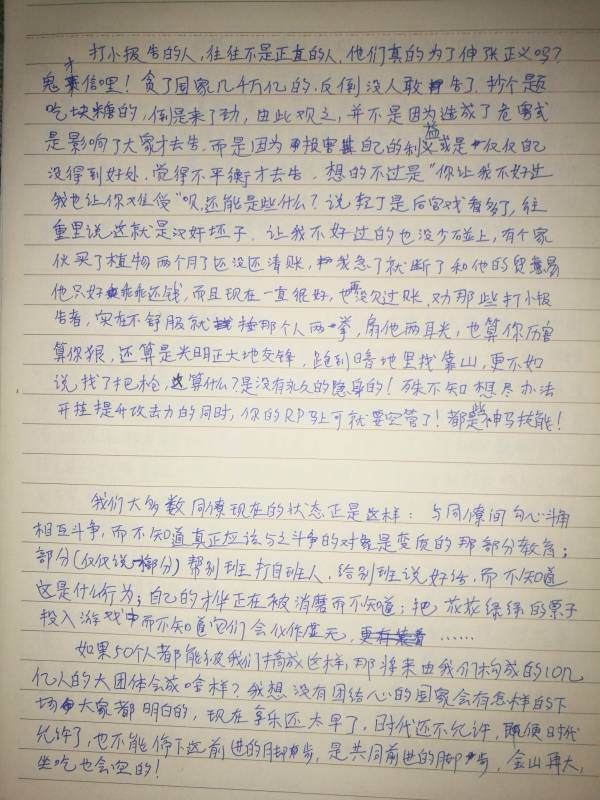 打小报告的人,往往不是正直的人,他们真的为了伸张正义吗?
鬼才信哩!贪了国家几千万亿的,反倒没人敢告了,抄个题
吃块糖的,倒是来了劲,由此观之,并不是因为造成了危害或
是影响了大家才去告,而是因为损害自己的利益或是仅仅自己
没得到好处,觉得不平衡才去告,想的不过是“你让我不好过
我也让你难受”呗,还能是些什么?说轻了是后宫戏看多了,往
重里说这就是汉奸坯子.让我不好过的也没少碰上,有个家
伙买了植物两个月了还没还清账,我急了就断了和他的贸易
他只好乖乖还钱,而且现在一直很好,也再没欠过账.劝那些打小报
告者,实在不舒服就捶那个人两拳,扇他两耳光,也算你厉害
算你狠,还算是光明正大地交锋,跑到暗地里找靠山,更不如
说找了把枪,这算什么?是没有永久的隐身的!殊不知想尽办法
开挂提升攻击力的同时,你的RP马上可就要空管了!都是些神马技能!
我们大多数同僚现在的状态正是这样:与同僚间勾心斗角
相互斗争,而不知道真正应该与之斗争的对象是变质的那部分教育;
部分(仅仅说一部分)帮别班打自班人,给别班说好话,而不知道
这是什么行为;自己的才华正在被消磨而不知道;把花花绿绿的票子
投入游戏中而不知道它们会化作虚无,……
如果50个人都能被我们搞成这样,那将来由我们构成的10几
亿人的大团体会成啥样?我想没有团结心的国家会有怎样的下
场大家都明白的,现在享乐还太早了,时代还不允许,即便时代
允许了,也不能停下这前进的脚步,是共同前进的脚步,金山再大,
坐吃也会空的!